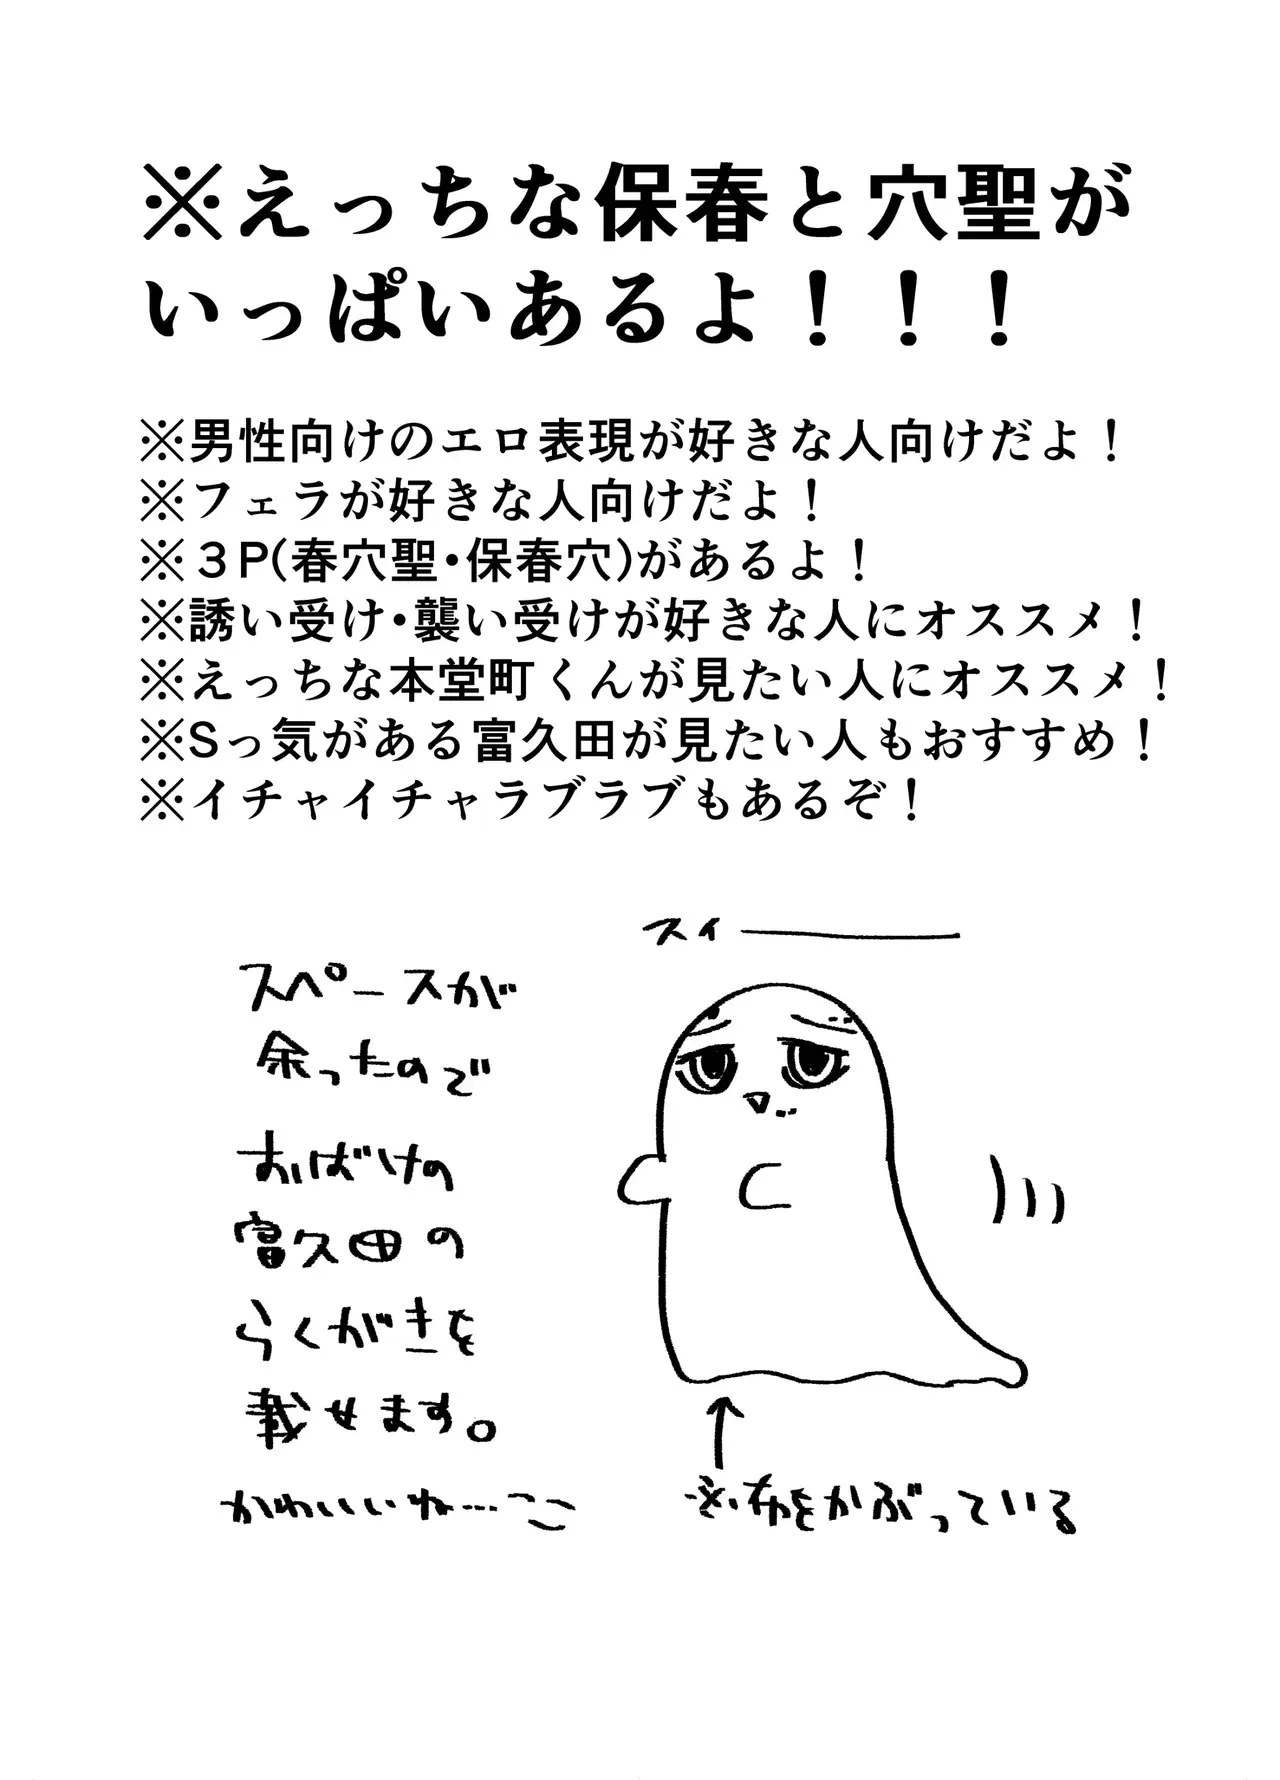 ※えっちな保春と穴聖が
いっぱいあるよ！！！
※男性向けのエロ表現が好きな人向けだよ！
※フェラが好きな人向けだよ！
※３P(春穴聖・保春穴)があるよ！
※誘い受け・襲い受けが好きな人にオススメ！
※えっちな本堂町くんが見たい人にオススメ！
※Sっ気がある富久田が見たい人もおすすめ！
※イチャイチャラブラブもあるぞ！
スイ―――
スペースが
余ったので
おばけの
富久田の
らくがきを
載せます。
かわいいね…
布をかぶっている